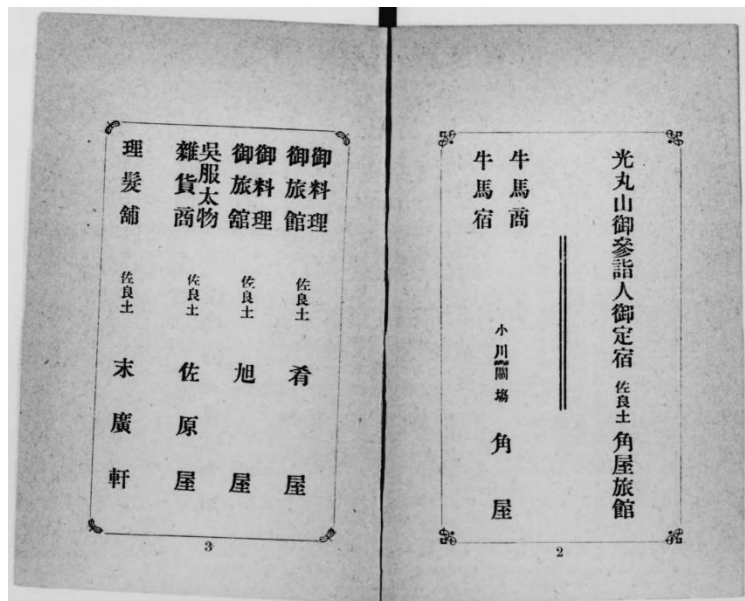 光丸山御參詣人御定宿 佐良土 角屋旅館
牛馬商
牛馬宿
小川關場 角屋
2
御料理
御旅館
佐良土 肴屋
御料理
御旅館
佐良土 旭屋
呉服太物
雜貨商
佐良土 佐原屋
理髮舖 佐良土 末廣軒
3